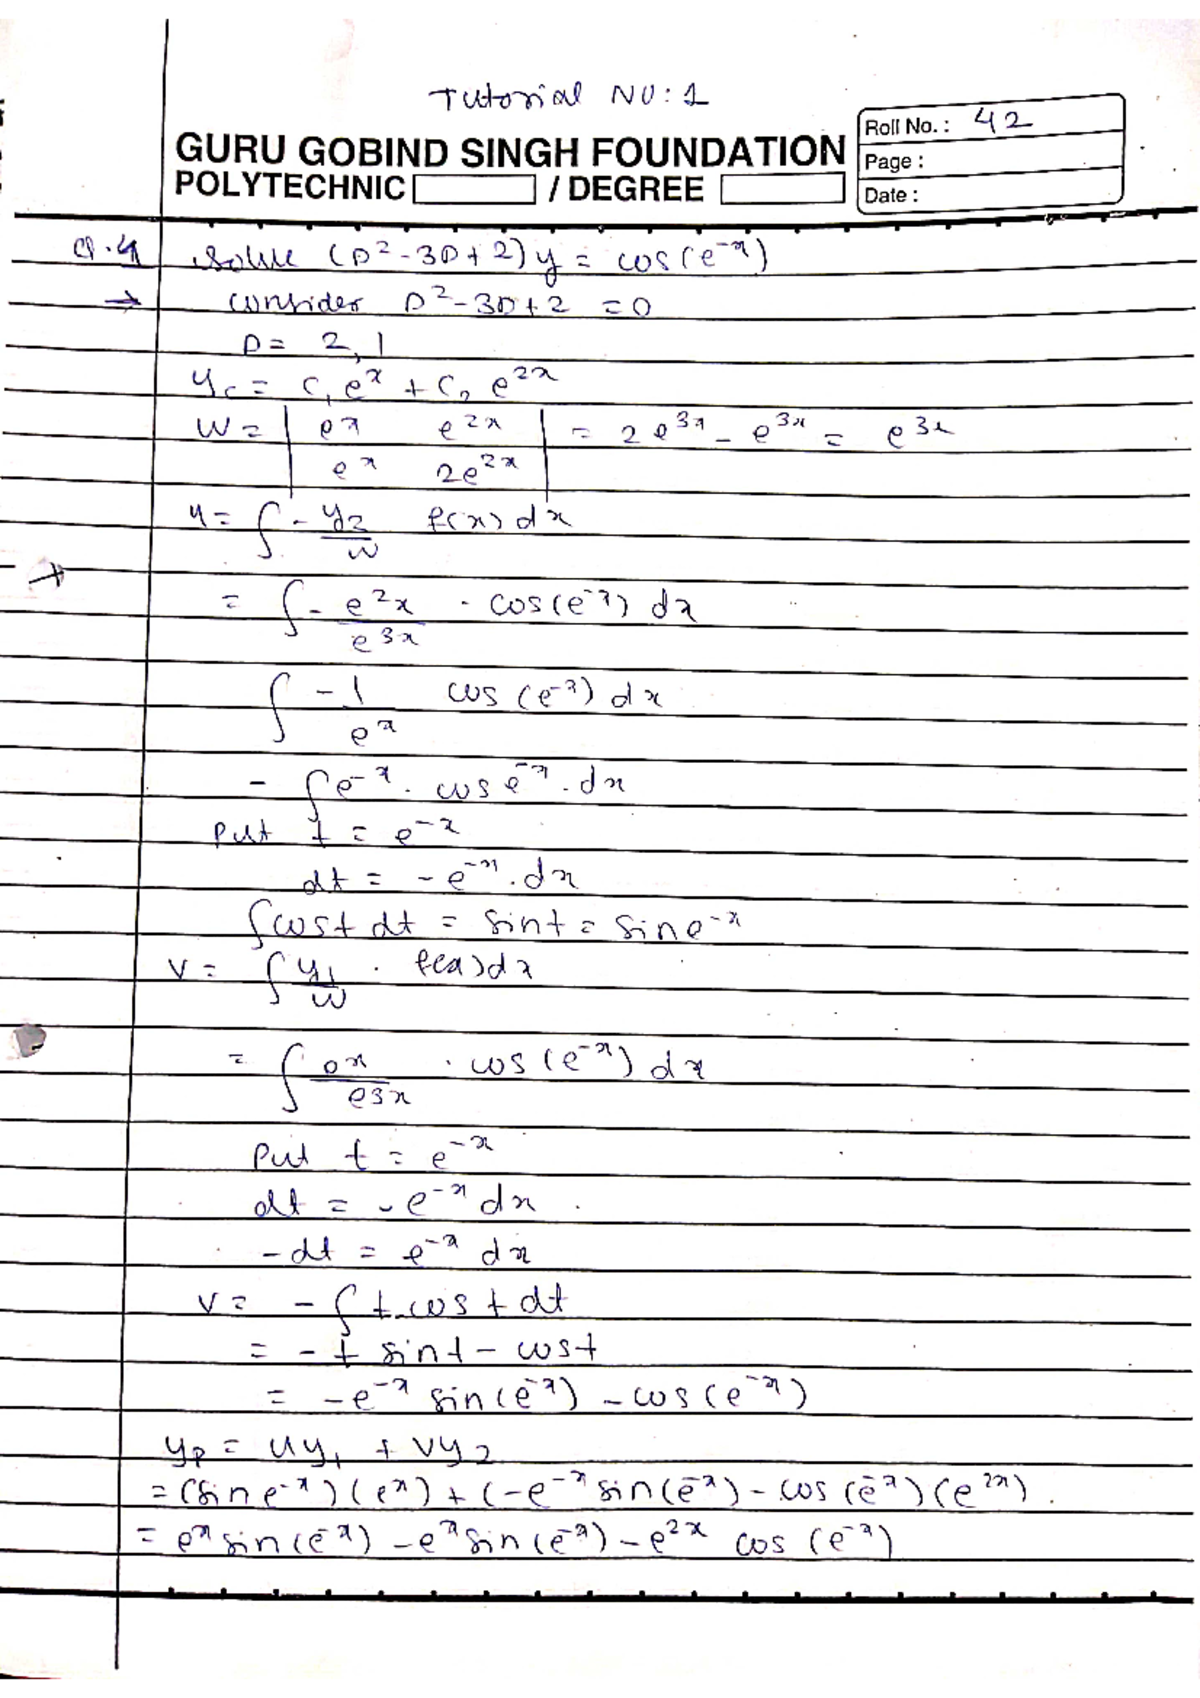 Tutorial NO: 1
GURU GOBIND SINGH FOUNDATION
POLYTECHNIC / DEGREE
Roll No. : 42
Page :
Date :
Q.4 Solve (D² - 3D + 2) y = cos(e⁻ˣ)
→ consider D² - 3D + 2 = 0
D = 2, 1
y_c = C₁ eˣ + C₂ e²ˣ
W = | eˣ e²ˣ | = 2e³ˣ - e³ˣ = e³ˣ
| eˣ 2e²ˣ |
u = ∫ - y₂/w f(x) dx
= ∫ - e²ˣ/e³ˣ . cos(e⁻ˣ) dx
∫ -1/eˣ cos (e⁻ˣ) dx
- ∫ e⁻ˣ . cos e⁻ˣ . dx
Put t = e⁻ˣ
dt = - e⁻ˣ . dx
∫ cost dt = sint = sin e⁻ˣ
V = ∫ y₁/w . f(x) dx
= ∫ eˣ/e3x . cos (e⁻ˣ) dx
Put t = e⁻ˣ
dt = - e⁻ˣ dx .
- dt = e⁻ˣ dx
V = - ∫ t.cos t dt
= - t sint - cost
= - e⁻ˣ sin(e⁻ˣ) - cos(e⁻ˣ)
y_p = uy₁ + Vy₂
= (sin e⁻ˣ) (eˣ) + (-e⁻ˣ sin(e⁻ˣ) - cos (e⁻ˣ) (e²ˣ) .
= eˣ sin(e⁻ˣ) - eˣ sin(e⁻ˣ) - e²ˣ cos (e⁻ˣ)